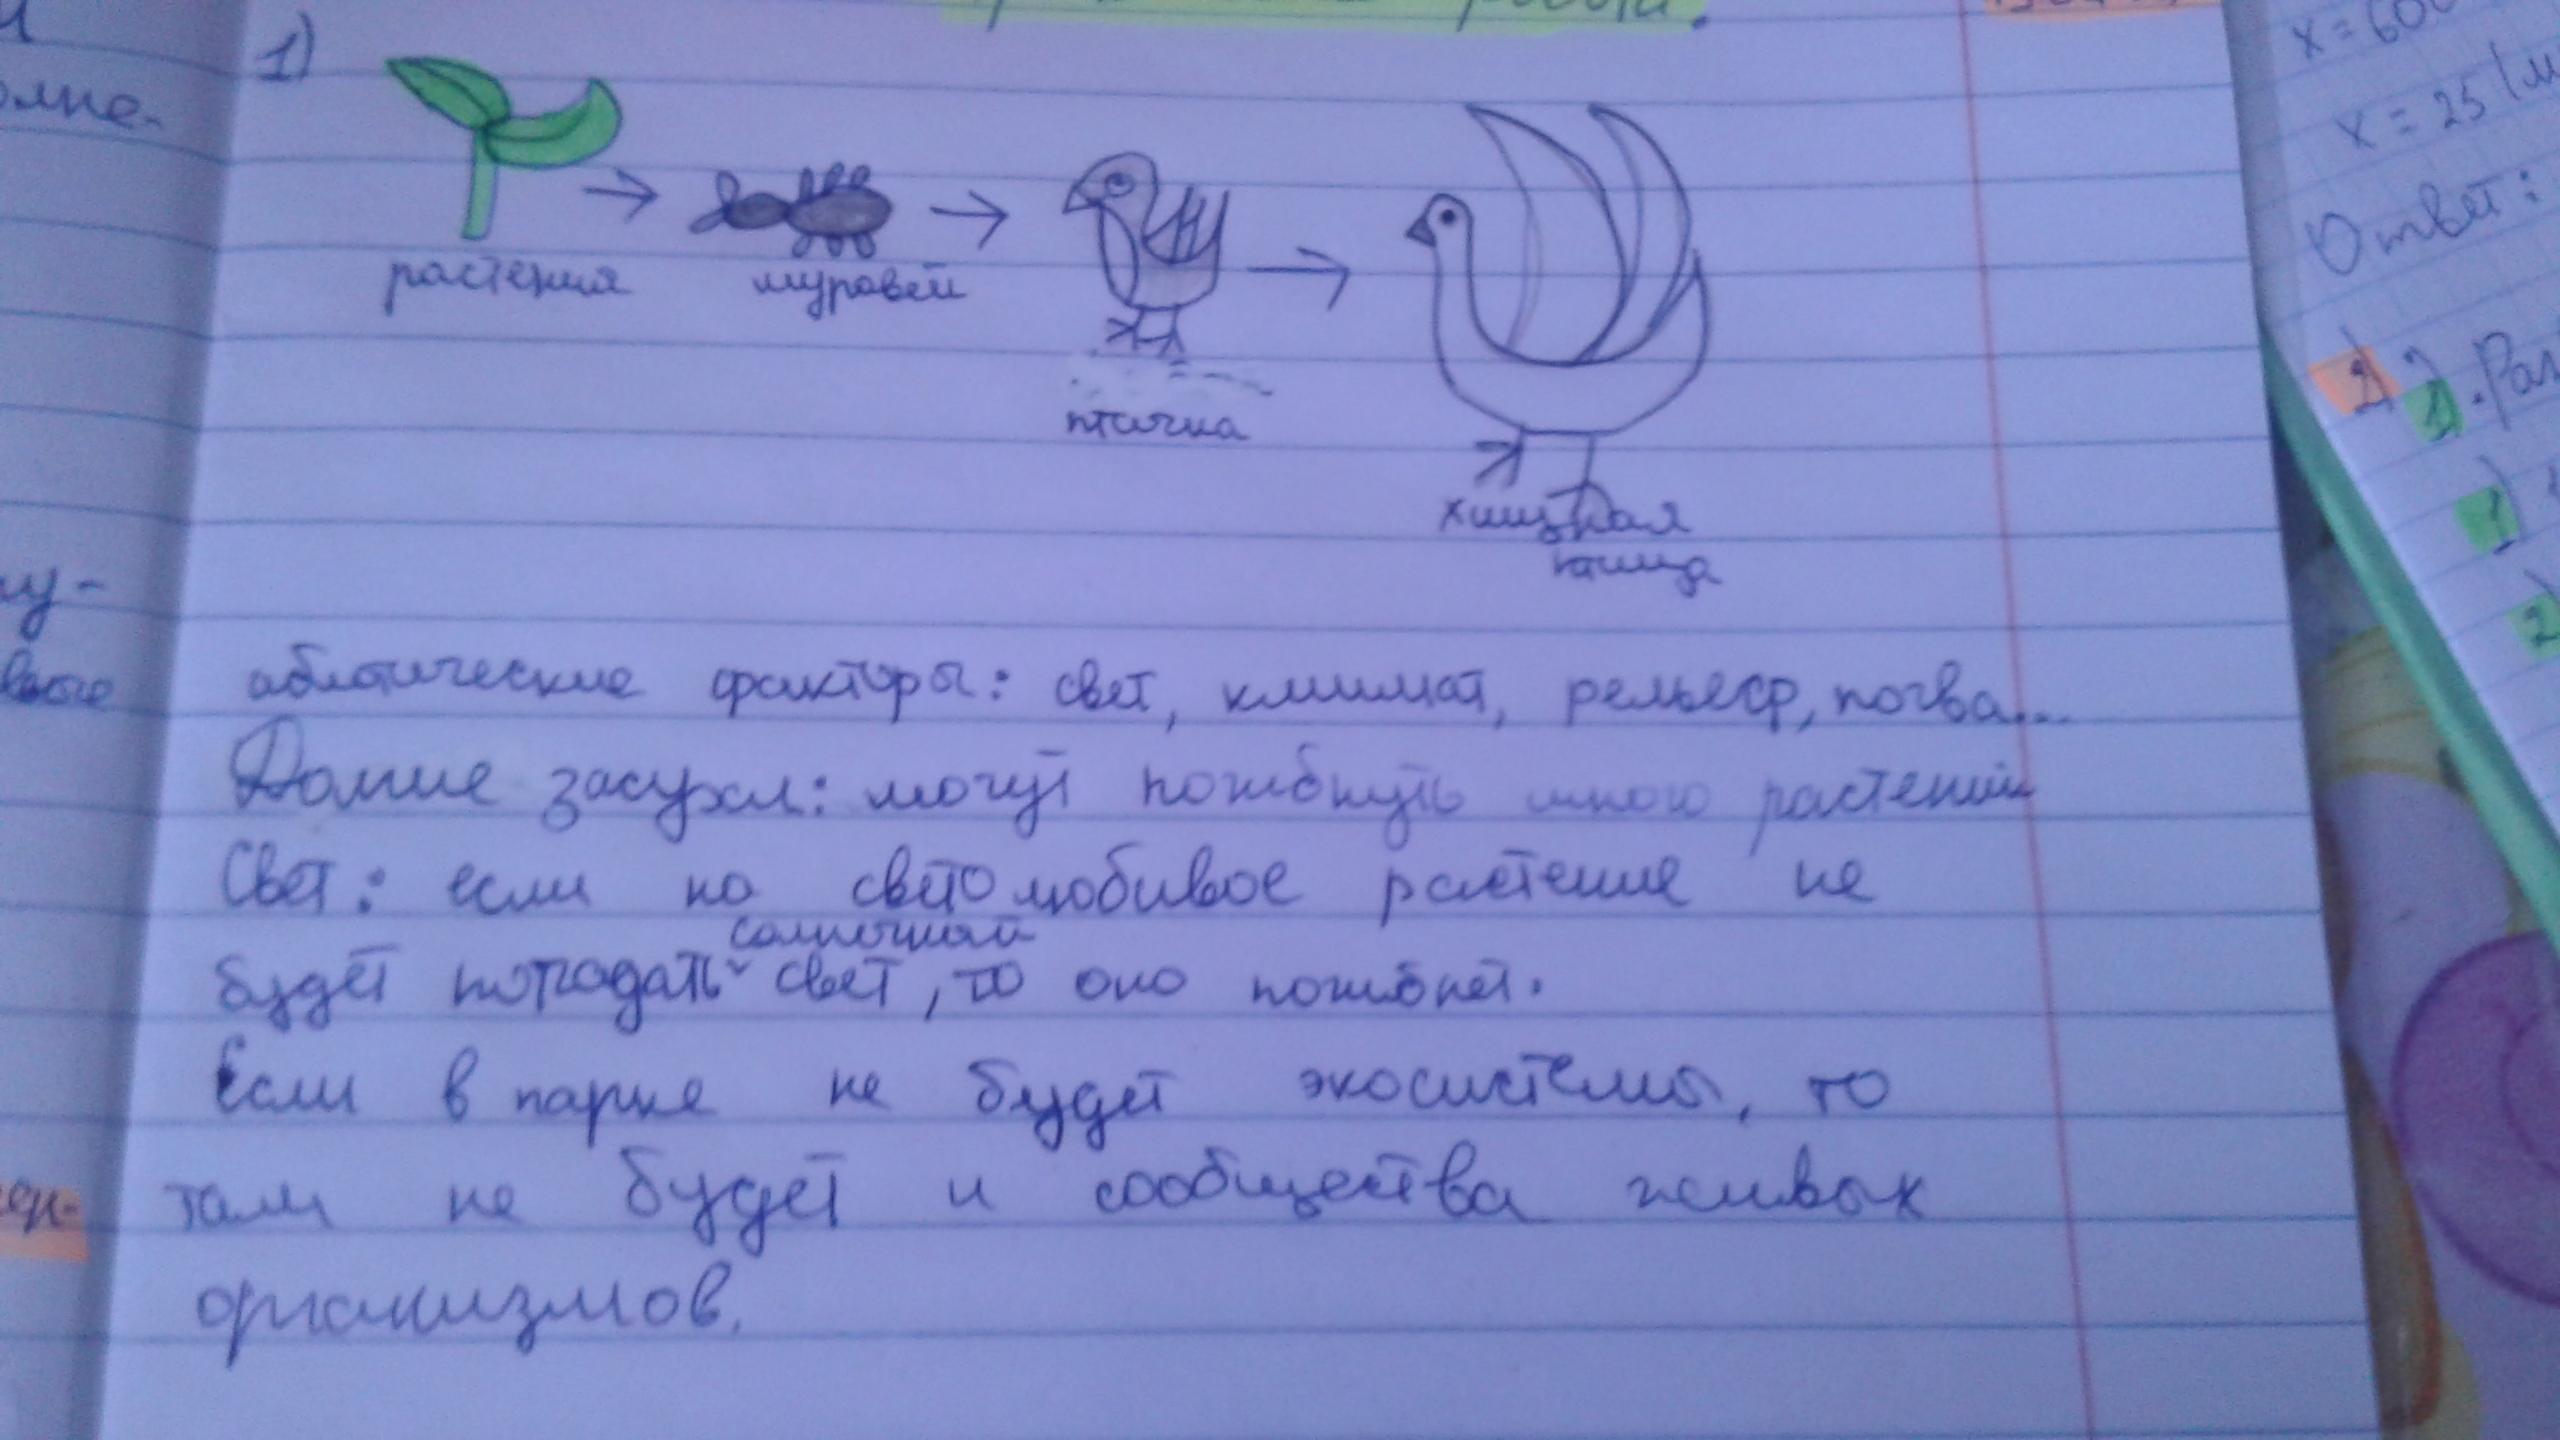 работа.
1)
растения
муравей
птичка
хищная
птица
абиотические факторы: свет, климат, рельеф, почва...
Долгие засухи: могут погибнуть много растений
Свет: если на светолюбивое растение не
солнечный
будет попадать свет, то оно погибнет.
Если в парке не будет экосистемы, то
там не будет и сообщества живых
организмов.
x = 600
x = 25
Ответ:
2)
1)
2)